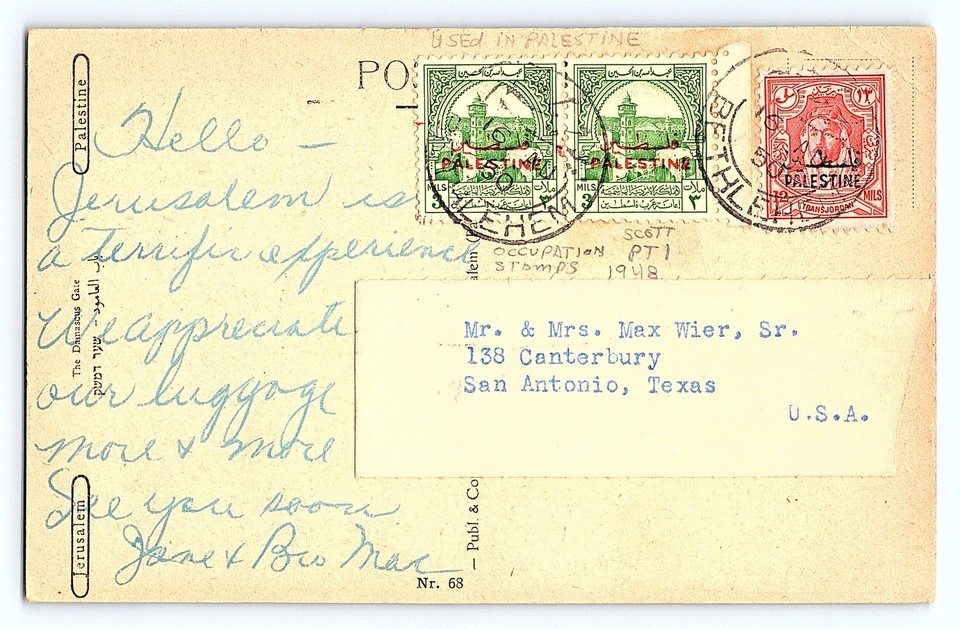 USED IN PALESTINE
PO
Palestine
Jerusalem
The Damascus Gate
باب العامود – שער דמשק
Hello –
Jerusalem is
a terrific experience
We appreciate
our luggage
more & more
See you soon
Jane & Bro Mac
PALESTINE
MILS
3
٣
ملات
فلسطين
PALESTINE
MILS
3
٣
ملات
فلسطين
١٢
فلسطين
PALESTINE
12
MILS
TRANSJORDAN
BETHLEHEM
BETHLEHEM
SCOTT
OCCUPATION PT 1
STAMPS 1948
Mr. & Mrs. Max Wier, Sr.
138 Canterbury
San Antonio, Texas
U.S.A.
– Publ. & Co
Nr. 68